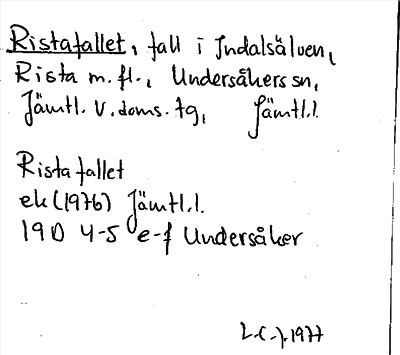 Ristafallet, fall i Indalsälven,
Rista m.fl., Undersåkers sn,
Jämtl. v. doms. tg, Jämtl.l.
Ristafallet
ek (1976) Jämtl.l.
19D 4-5 e-f Undersåker
L.C-J.1977